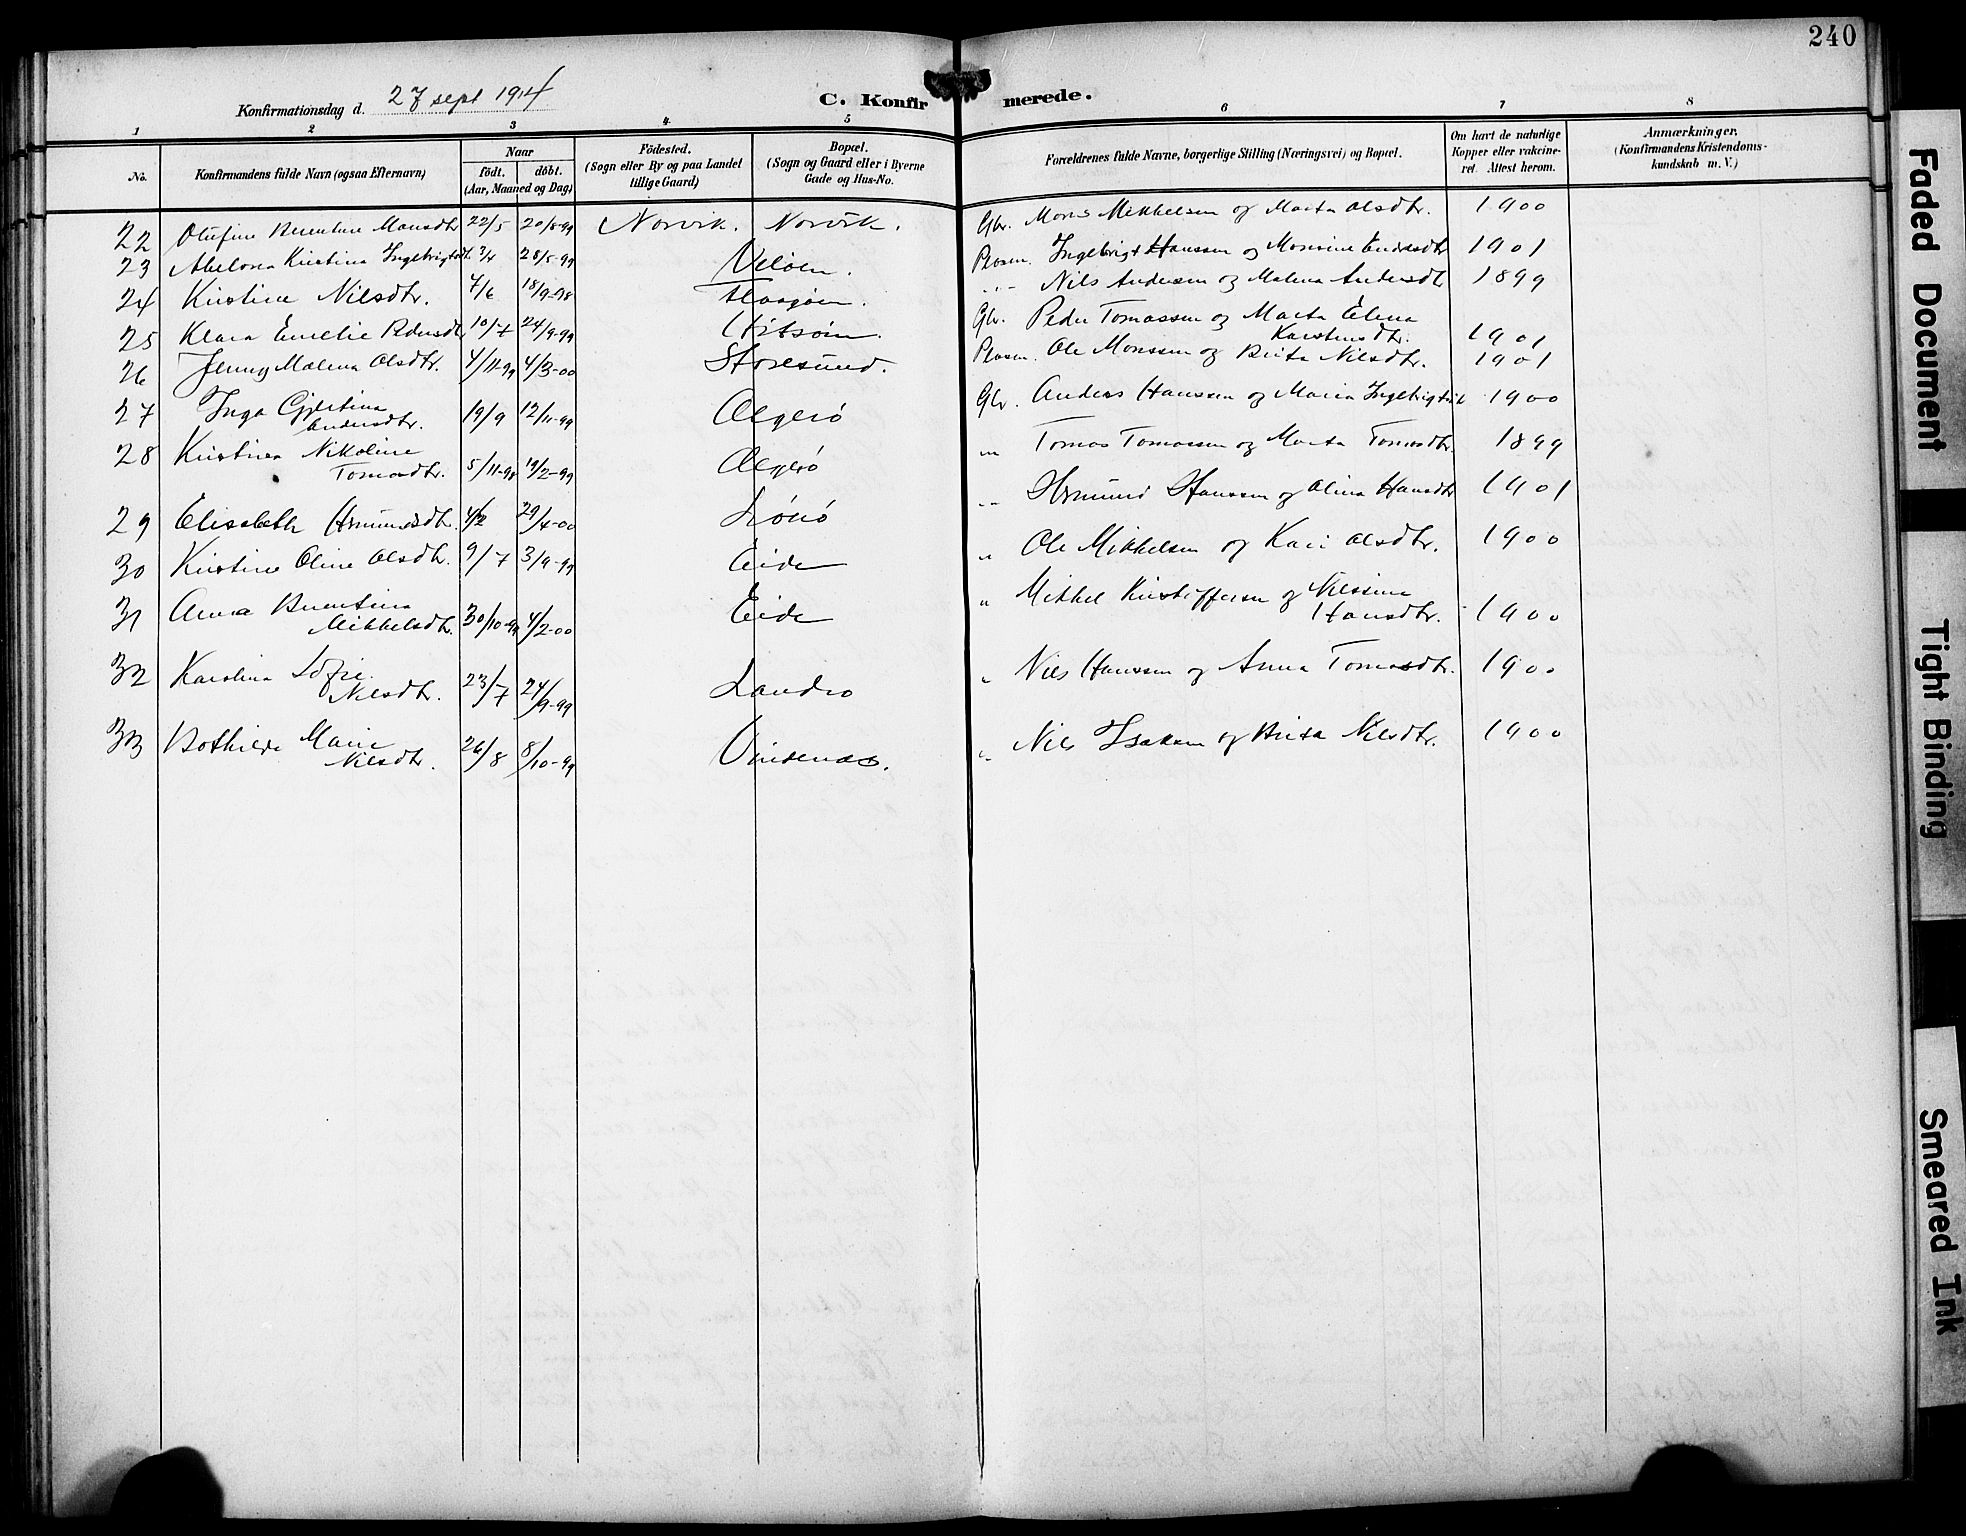 240
Konfirmationsdag d. 27 sept 1914
C. Konfirmerede.
1 2 3 4 5 6 7 8
No.
Konfirmandens fulde Navn (ogsaa Efternavn)
Naar
födt. döbt.
(Aar, Maaned og Dag)
Födested.
(Sogn eller By og paa Landet
tillige Gaard)
Bopæl.
(Sogn og Gaard eller i Byerne
Gade og Hus-No.
Forældrenes fulde Navne, borgerlige Stilling (Næringsvei) og Bopæl.
Om havt de naturlige
Kopper eller vakcine-
ret. Attest herom.
Anmærkninger,
(Konfirmandens Kristendoms-
kundskab m. V.)
22 Olufine Berentine Monsdtr 22/5 20/8-99 Norvik. Norvik. Gbr. Mons Mikkelsen og Marta Olsdtr. 1900
23 Abelona Kristina Ingebrigtsdt. 3/4 28/5-99 Veløen. Plasm. Ingebrigt Hanssen og Monsine Andersdtr 1901
24 Kristine Nilsdtr. 7/6 18/9-98 -"- Nils Andersen og Malena Andersdt 1899
25 Klara Emelie Pedersdtr 10/7 24/9-99 Gbr. Peder Tomassen og Marta Elena
Karstensdtr. 1901
26 Jenny Malena Olsdtr. 4/11-99 4/3-00 Storesund. Plasm. Ole Monssen og Brita Nilsdtr. 1901
27 Inga Gjertina
Andersdtr. 19/9 12/11-99 Algerö Gbr. Anders Hanssen og Maria Ingebrigtsd 1900
28 Kristina Nikoline
Tomasdtr. 5/11-98 19/2-99 Algerö -"- Tomas Tomassen og Marta Tomasdtr. 1899
29 Elisabeth Asmundsdtr. 4/2 29/4-00 Lönö -"- Asmund Hanssen og Olina Hansdtr 1901
30 Kristine Oline Olsdtr. 9/7 3/9-99 Eide " Ole Mikkelsen og Kari Olsdtr. 1900
31 Anna Berentina
Mikkelsdtr. 30/10-99 4/2-00 Eide " Mikkel Kristoffersen og Nilssine
Hansdtr. 1900
32 Karolina Sofie
Nilsdtr. 23/7 24/9-99 Landro " Nils Hanssen og Anna Tomasdtr. 1900
33 Bothilde Marie
Nilsdtr. 26/8 8/10-99 Vindenæs. " Nils Isaksen og Brita Nilsdtr. 1900
Faded Document
Tight Binding
Smeared Ink